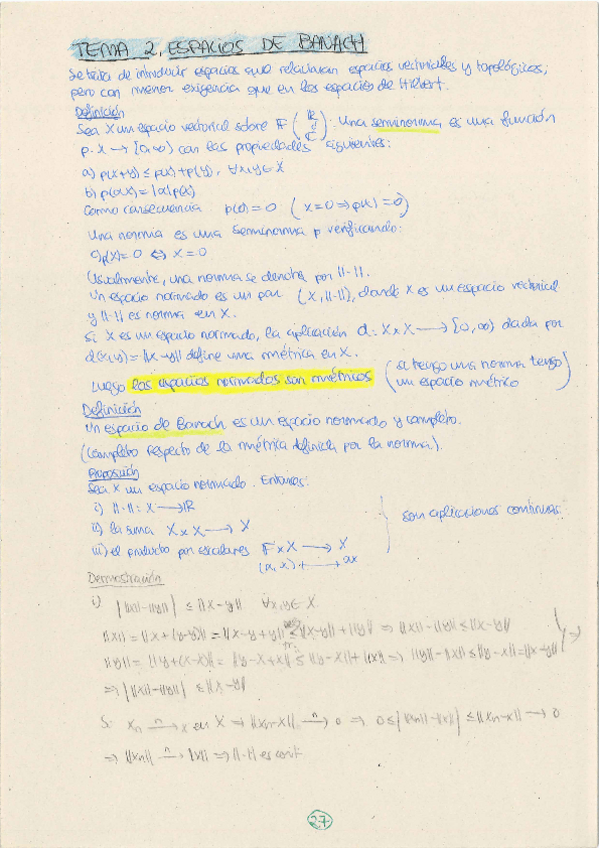 TEMA 2. ESPACIOS DE BANACH
Se trata de introducir espacios que relacionan espacios vectoriales y topológicos,
pero con menor exigencia que en los espacios de Hilbert.
Definición
Sea X un espacio vectorial sobre 𝔽 (ℝ ó ℂ). Una seminorma es una función
p: X → [0,∞) con las propiedades siguientes:
a) p(x+y) ≤ p(x)+p(y), ∀x,y∈X
b) p(αx) = |α|p(x)
Como consecuencia p(0)=0 (x=0 ⇒ p(x)=0)
Una norma es una seminorma p verificando:
c) p(x)=0 ⇔ x=0
Usualmente, una norma se denota por ||·||.
Un espacio normado es un par (X, ||·||), donde X es un espacio vectorial
y ||·|| es norma en X.
Si X es un espacio normado, la aplicación d: X×X → [0,∞) dada por
d(x,y)=||x-y|| define una métrica en X.
Luego los espacios normados son métricos (si tengo una norma tengo
un espacio métrico)
Definición
Un espacio de Banach es un espacio normado y completo.
(completo respecto de la métrica definida por la norma).
Proposición
Sea X un espacio normado. Entonces:
i) ||·||: X → ℝ
ii) la suma X×X → X
son aplicaciones continuas.
iii) el producto por escalares 𝔽×X → X
(α,x) ↦ αx
Demostración
i) | ||x||-||y|| | ≤ ||x-y|| ∀x,y∈X.
||x|| = ||x+(y-y)|| = ||x-y+y|| ≤ ||x-y||+||y|| ⇒ ||x||-||y|| ≤ ||x-y||
||y|| = ||y+(x-x)|| = ||y-x+x|| ≤ ||y-x||+||x|| ⇒ ||y||-||x|| ≤ ||y-x|| = ||x-y||
⇒ | ||x||-||y|| | ≤ ||x-y||
Si xn →n x en X ⇒ ||xn-x|| →n 0 ⇒ 0 ≤ | ||xn||-||x|| | ≤ ||xn-x|| → 0
⇒ ||xn|| →n ||x|| ⇒ ||·|| es cont.
27